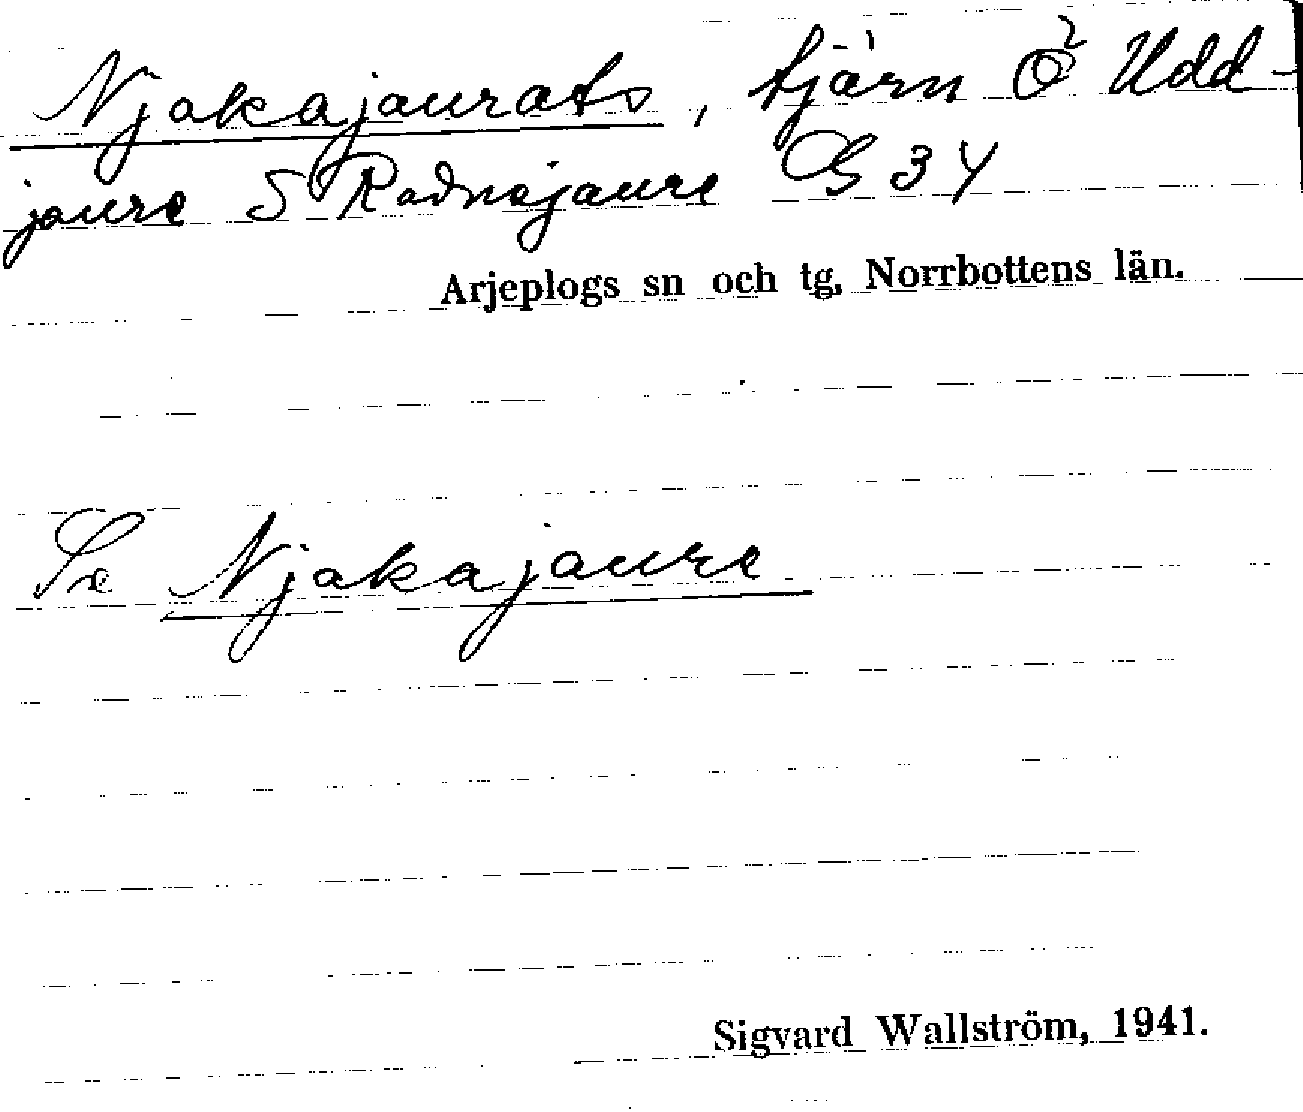 Njakajaurats, tjärn Ö Udd-
jaure S Radnejaure G 34
Arjeplogs sn och tg, Norrbottens län.
Se Njakajaure
Sigvard Wallström, 1941.